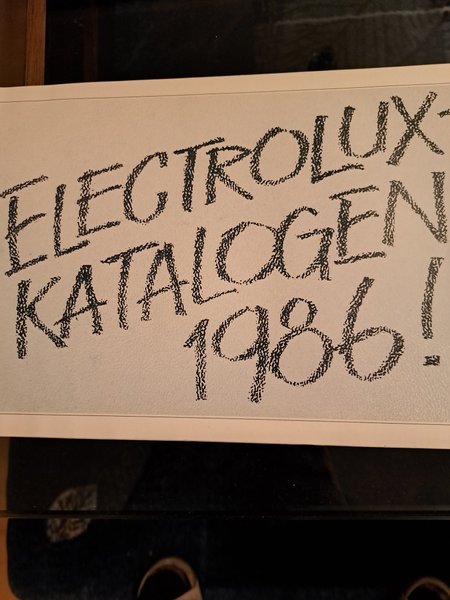 ELECTROLUX-
KATALOGEN
1986!